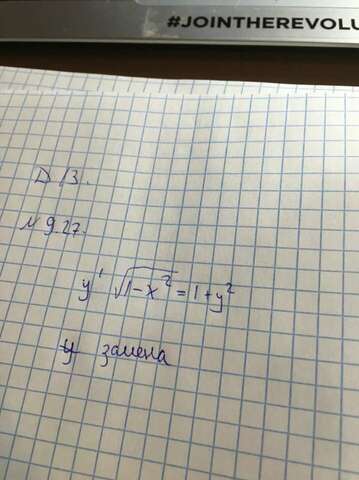 #JOINTHEREVOLU
Д/З.
№ 9.27.
y' √1-x² = 1+y²
замена